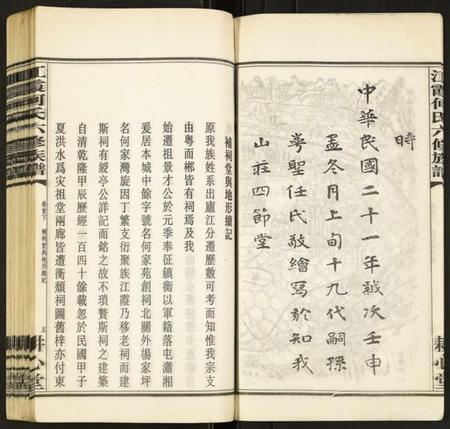 江霞何氏六修族譜
耕心堂
時
中華民國二十一年歲次壬申
孟冬月上旬十九代嗣孫
粤聖任氏敬繪寫於知我
山莊四節堂
補祠堂與地形續記
原我族姓系出廬江分遷歷數可考而知惟我宗支
由粤而郴皆有祠焉及我
始遷祖景才公於元季奉征鎮衡以軍籍落屯瀟湘
爰居本城中餘字號名何家苑創祠北關外楊家坪
名何家灣旋因丁繁支衍聚族江霞乃移老祠而建
斯祠有綬亭公詳記而銘之故不瑣贅斯祠之建築
自清乾隆甲辰歷經一百四十餘載忽於民國甲子
夏洪水爲灾祖堂兩廊皆遭衝頽祠圖舊梓亦付東
江霞何氏六修族譜
卷首下
補祠堂與地形續記
五
耕心堂